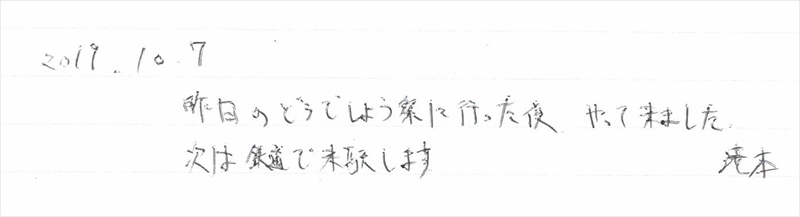 2019.10.7
昨日のどうでしょう祭に行った後 やって来ました。
次は鉄道で来駅します 滝本